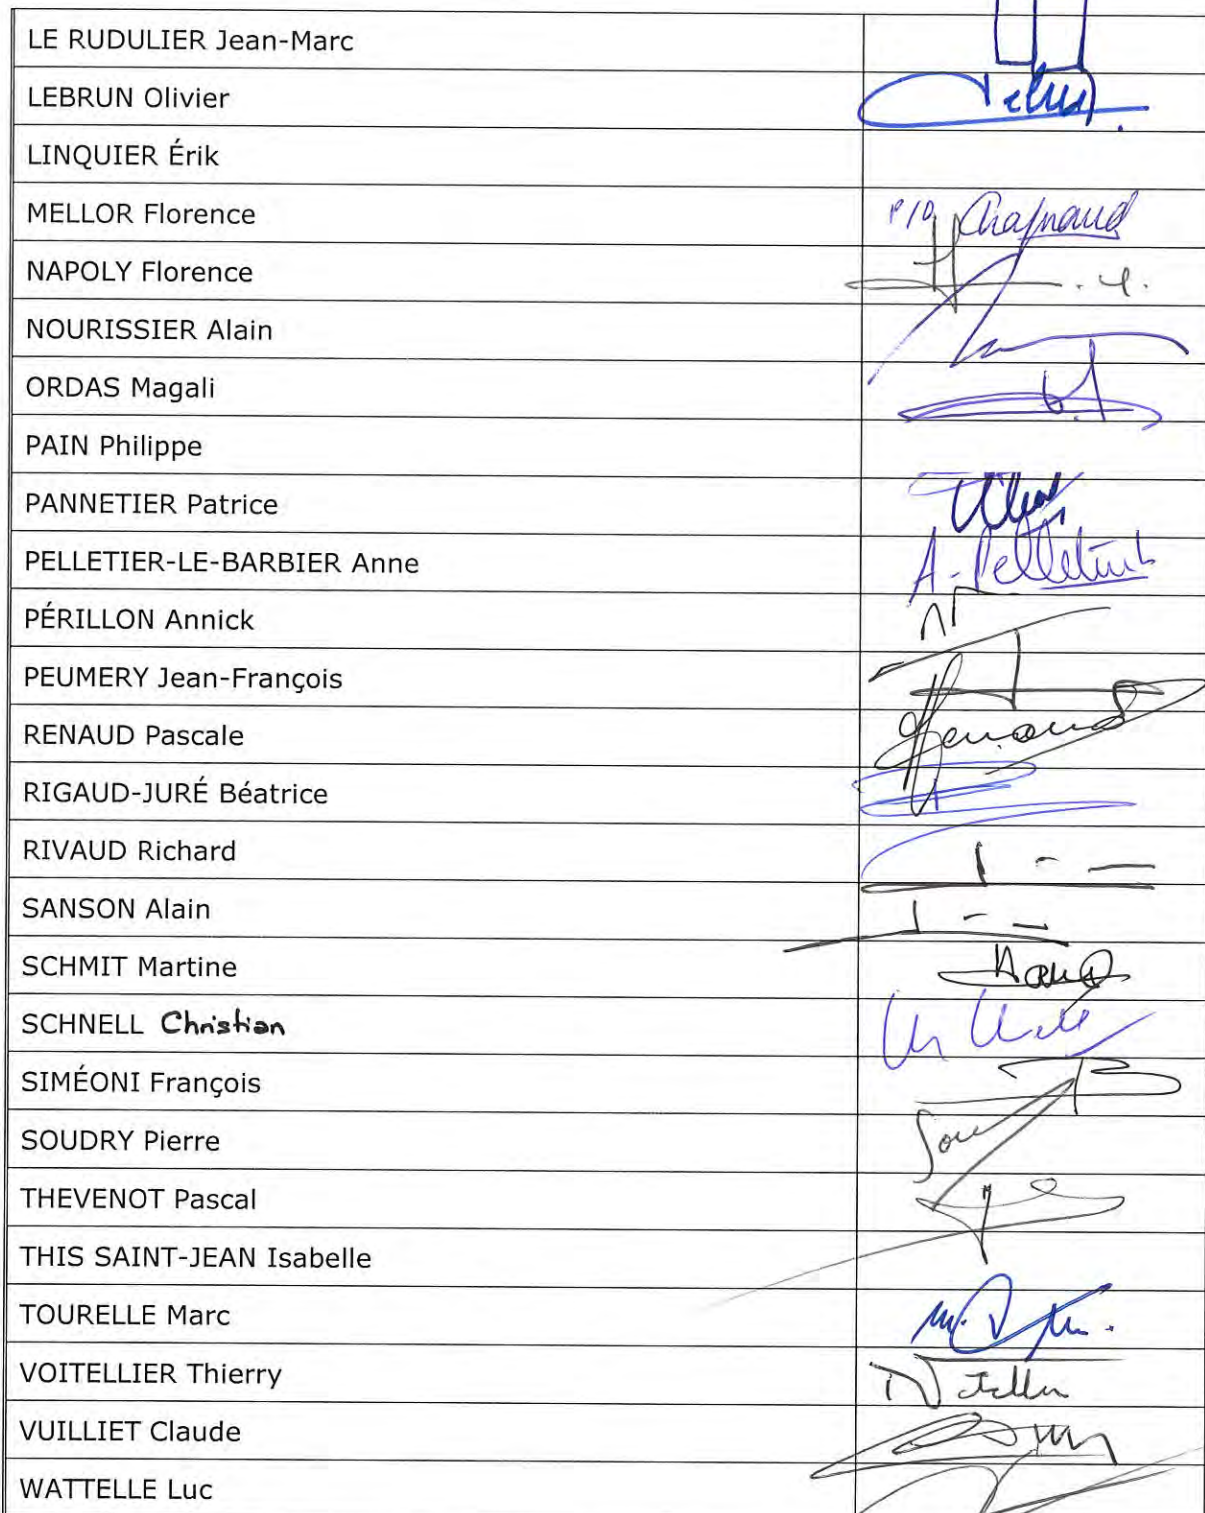 LE RUDULIER Jean-Marc
LEBRUN Olivier
LINQUIER Érik
MELLOR Florence P/O
NAPOLY Florence
NOURISSIER Alain
ORDAS Magali
PAIN Philippe
PANNETIER Patrice
PELLETIER-LE-BARBIER Anne A. Pelletier
PÉRILLON Annick
PEUMERY Jean-François
RENAUD Pascale Renaud
RIGAUD-JURÉ Béatrice
RIVAUD Richard
SANSON Alain
SCHMIT Martine
SCHNELL Christian
SIMÉONI François
SOUDRY Pierre
THEVENOT Pascal
THIS SAINT-JEAN Isabelle
TOURELLE Marc
VOITELLIER Thierry
VUILLIET Claude
WATTELLE Luc